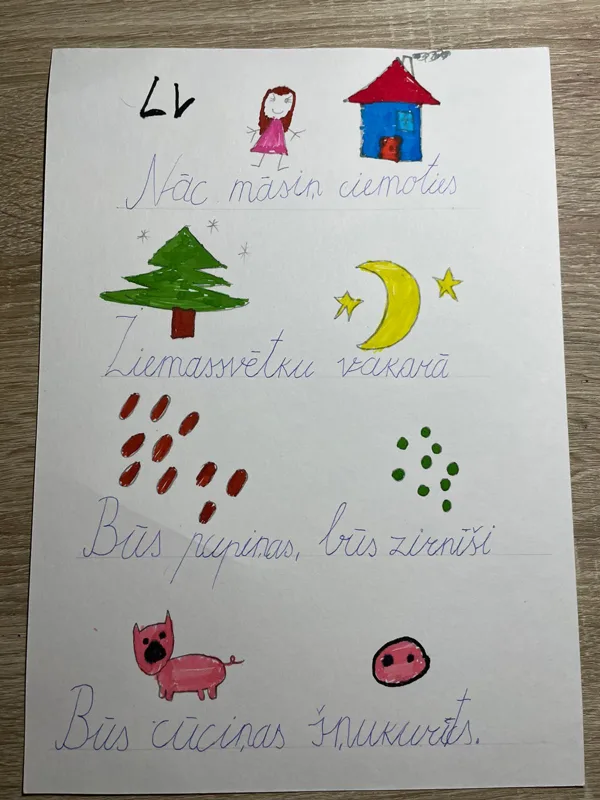 LV
Nāc māsiņ ciemoties
Ziemassvētku vakarā
Būs pupiņas, būs zirnīši
Būs cūciņas šņukurīts.